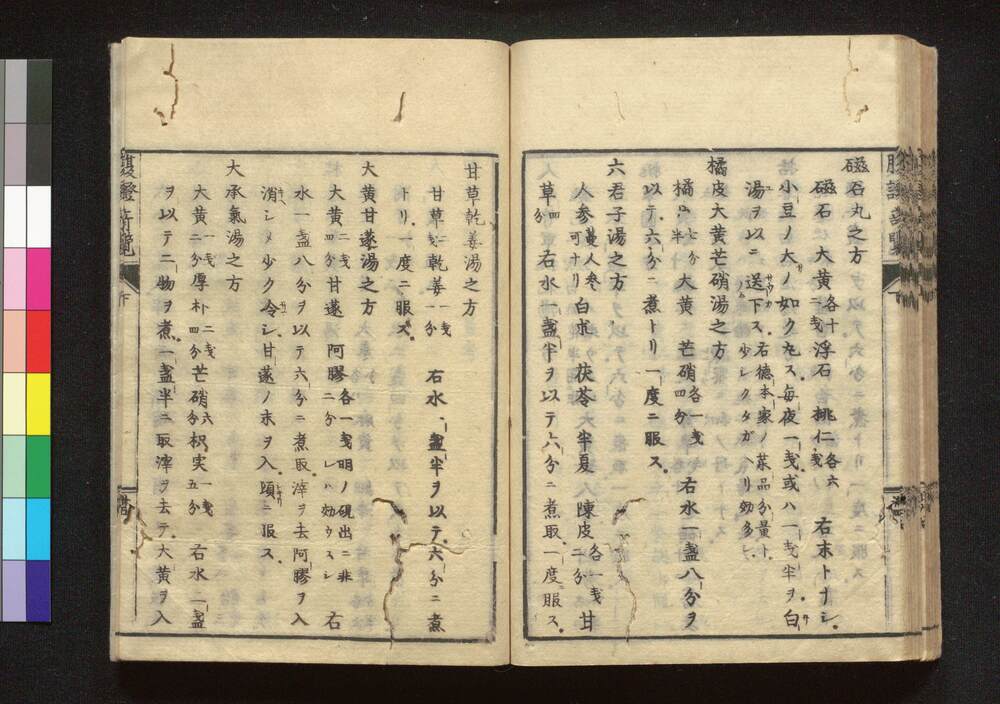 磁石丸之方
磁石 大黄各十二戔 浮石 桃仁各六戔 右末トナシ
小豆ノ大ノ如ク丸ス毎夜一戔或ハ一戔半ヲ白
湯ヲ以ニ送下ス
橘皮大黄芒硝湯之方
橘七分半 大黄 芒硝各一戔四分 右水一盞八分ヲ
以テ六分ニ煮トリ一度ニ服ス
六君子湯之方
人参蔓人参可ナリ 白朮 茯苓 半夏 陳皮各一戔二分 甘
草四分 右水一盞半ヲ以テ六分ニ煮取一度服ス
甘草乾姜湯之方
甘草二戔 乾姜一戔一分 右水一盞半ヲ以テ六分ニ煮
トリ一度ニ服ス
大黄甘遂湯之方
大黄二戔四分 甘遂 阿膠各一戔二分 右
水一盞八分ヲ以テ六分ニ煮取滓ヲ去阿膠ヲ入
消シメ少ク令シ甘遂ノ末ヲ入頓ニ服ス
大承氣湯之方
大黄一戔二分 厚朴二戔四分 芒硝六分 枳実一戔五分 右水一盞
ヲ以テ二物ヲ煮一盞半ニ取滓ヲ去テ大黄ヲ入